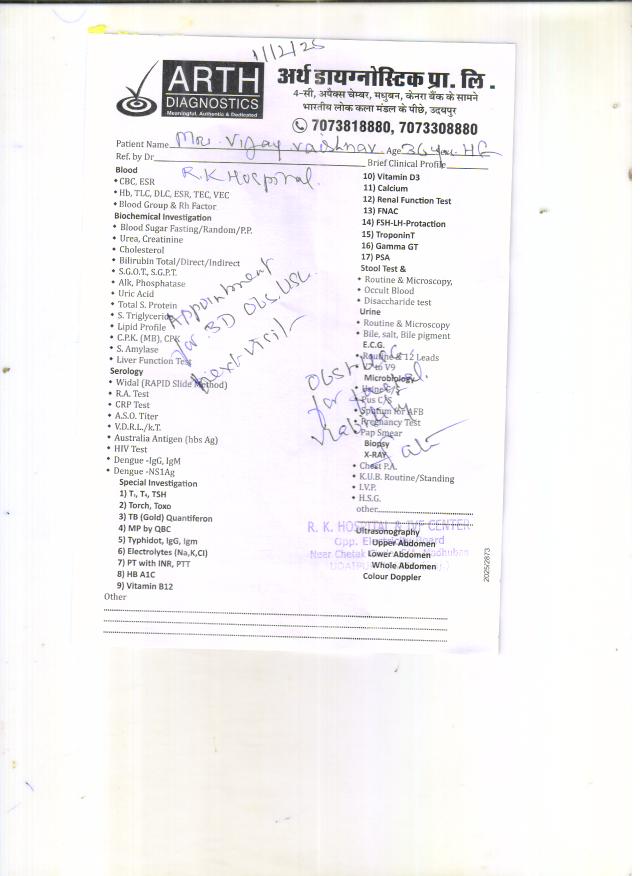 1/12/25
ARTH
DIAGNOSTICS
Meaningful, Authentic & Dedicated
अर्थ डायग्नोस्टिक प्रा. लि .
4-सी, अपैक्स चेम्बर, मधुबन, केनरा बैंक के सामने
भारतीय लोक कला मंडल के पीछे, उदयपुर
7073818880, 7073308880
Patient Name Mrs. Vijay Vaishnav Age 36 year
Ref. by Dr Brief Clinical Profile
R.K Hospital.
Blood
CBC, ESR
Hb, TLC, DLC, ESR, TEC, VEC
Blood Group & Rh Factor
Biochemical Investigation
Blood Sugar Fasting/Random/P.P.
Urea, Creatinine
Cholesterol
Bilirubin Total/Direct/Indirect
S.G.O.T., S.G.P.T.
Alk, Phosphatase
Uric Acid
Total S. Protein
S. Triglyceride
Lipid Profile
C.P.K. (MB), CPK
S. Amylase
Liver Function Test
Serology
Widal (RAPID Slide Method)
R.A. Test
CRP Test
A.S.O. Titer
V.D.R.L./k.T.
Australia Antigen (hbs Ag)
HIV Test
Dengue -IgG, IgM
Dengue -NS1Ag
Special Investigation
1) T₃, T₄, TSH
2) Torch, Toxo
3) TB (Gold) Quantiferon
4) MP by QBC
5) Typhidot, IgG, Igm
6) Electrolytes (Na,K,Cl)
7) PT with INR, PTT
8) HB A1C
9) Vitamin B12
Other
Appointment
for 3D Obs. USG.
Next visit
10) Vitamin D3
11) Calcium
12) Renal Function Test
13) FNAC
14) FSH-LH-Protaction
15) TroponinT
16) Gamma GT
17) PSA
Stool Test &
Routine & Microscopy,
Occult Blood
Disaccharide test
Urine
Routine & Microscopy
Bile, salt, Bile pigment
E.C.G.
Routine & 12 Leads
V7 to V9
Microbiology
Urine C/S
Pus C/S
Sputum for AFB
Pregnancy Test
Pap Smear
Biopsy
X-RAY
Chest P.A.
K.U.B. Routine/Standing
I.V.P.
H.S.G.
other
Ultrasonography
Upper Abdomen
Lower Abdomen
Whole Abdomen
Colour Doppler
Obst. USG
for
viability
R. K. HOSPITAL & IVF CENTER
Opp. Electricity Board
Near Chetak Madhuban
UDAIPUR
2025/2873